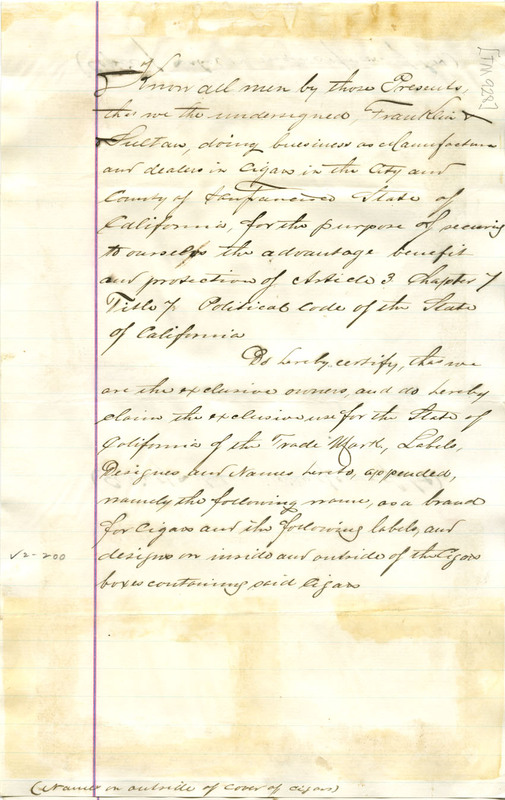 [TM 928]
Know all men by those Presents,
that we the undersigned, Franklin &
Sultan, doing buisiness as Manufacture
and dealers in Cigars in the City and
County of San Francisco State of
California, for the purpose of securing
to ourselfs the advantage benefit
and protection of Article 3 Chapter 7
Title 7. Political Code of the State
of California
Do hereby certify, that we
are the exclusive owners, and do hereby
claim the exclusive use for the State of
California of the Trade Mark, Labels,
Designes and Names hereto, appended,
namely the following name, as a brand
for Cigars and the following labels, and
designs on inside and outside of the Cigar
boxes containing said Cigars
52-200
(Names on outside of cover of cigars)